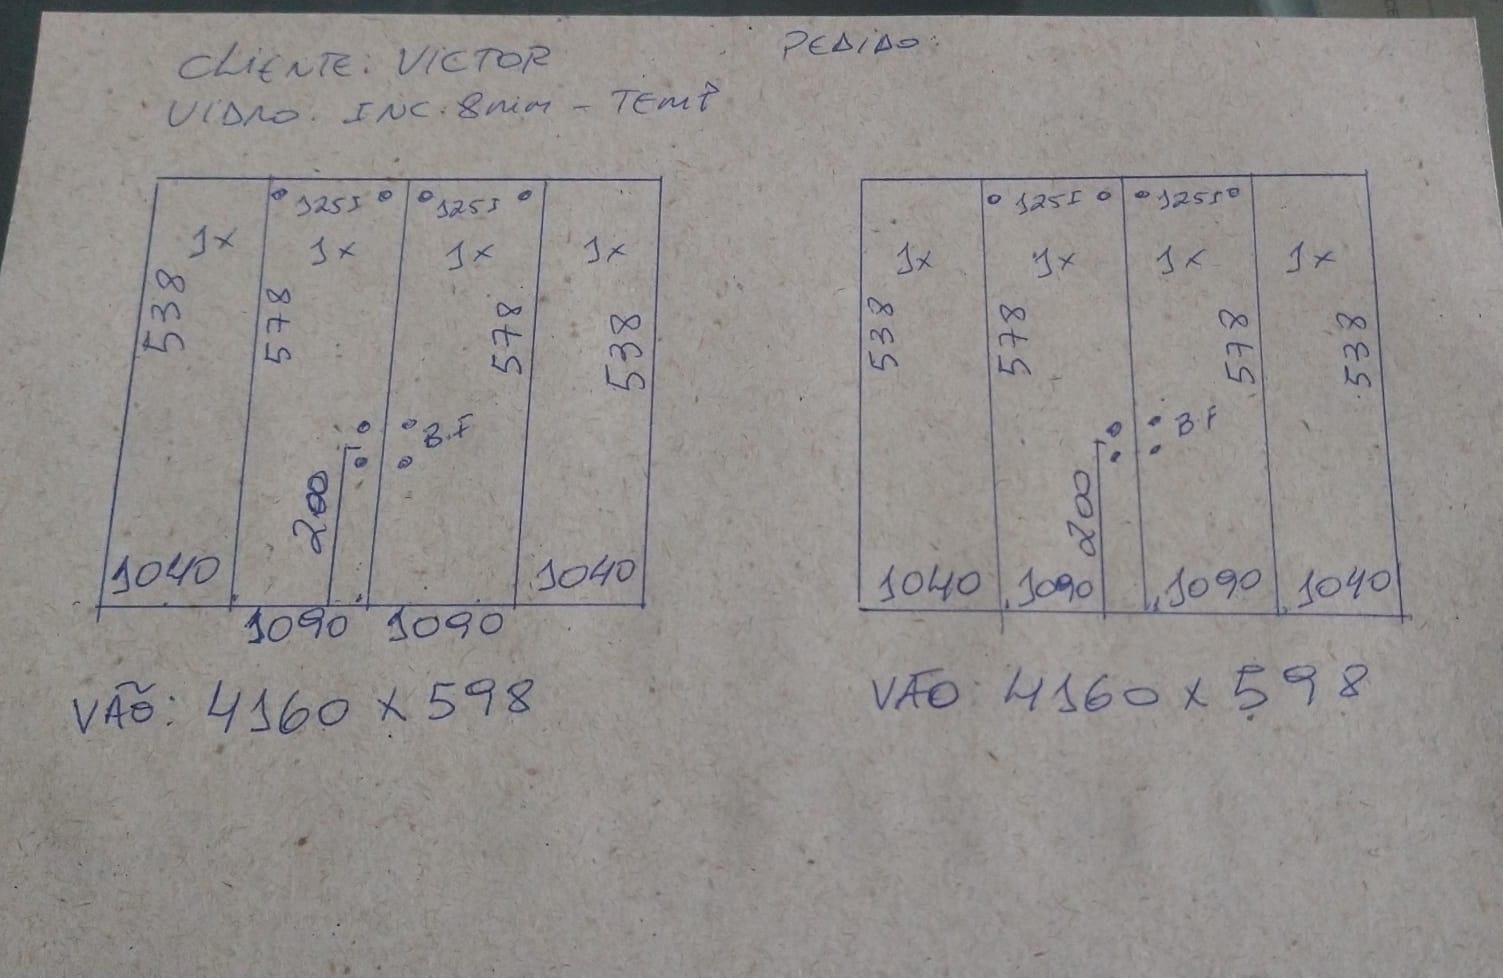 CLIENTE: VICTOR
PEDIDO:
VIDRO. INC. 8mm - TEMP
1253 1253
1x 1x 1x 1x
538 578 578 538
B.F
200
1040 1040
1090 1090
VÃO: 4160 x 598
1253 1253
1x 1x 1x 1x
538 578 578 538
B.F
200
1040 1090 1090 1040
VÃO: 4160 x 598